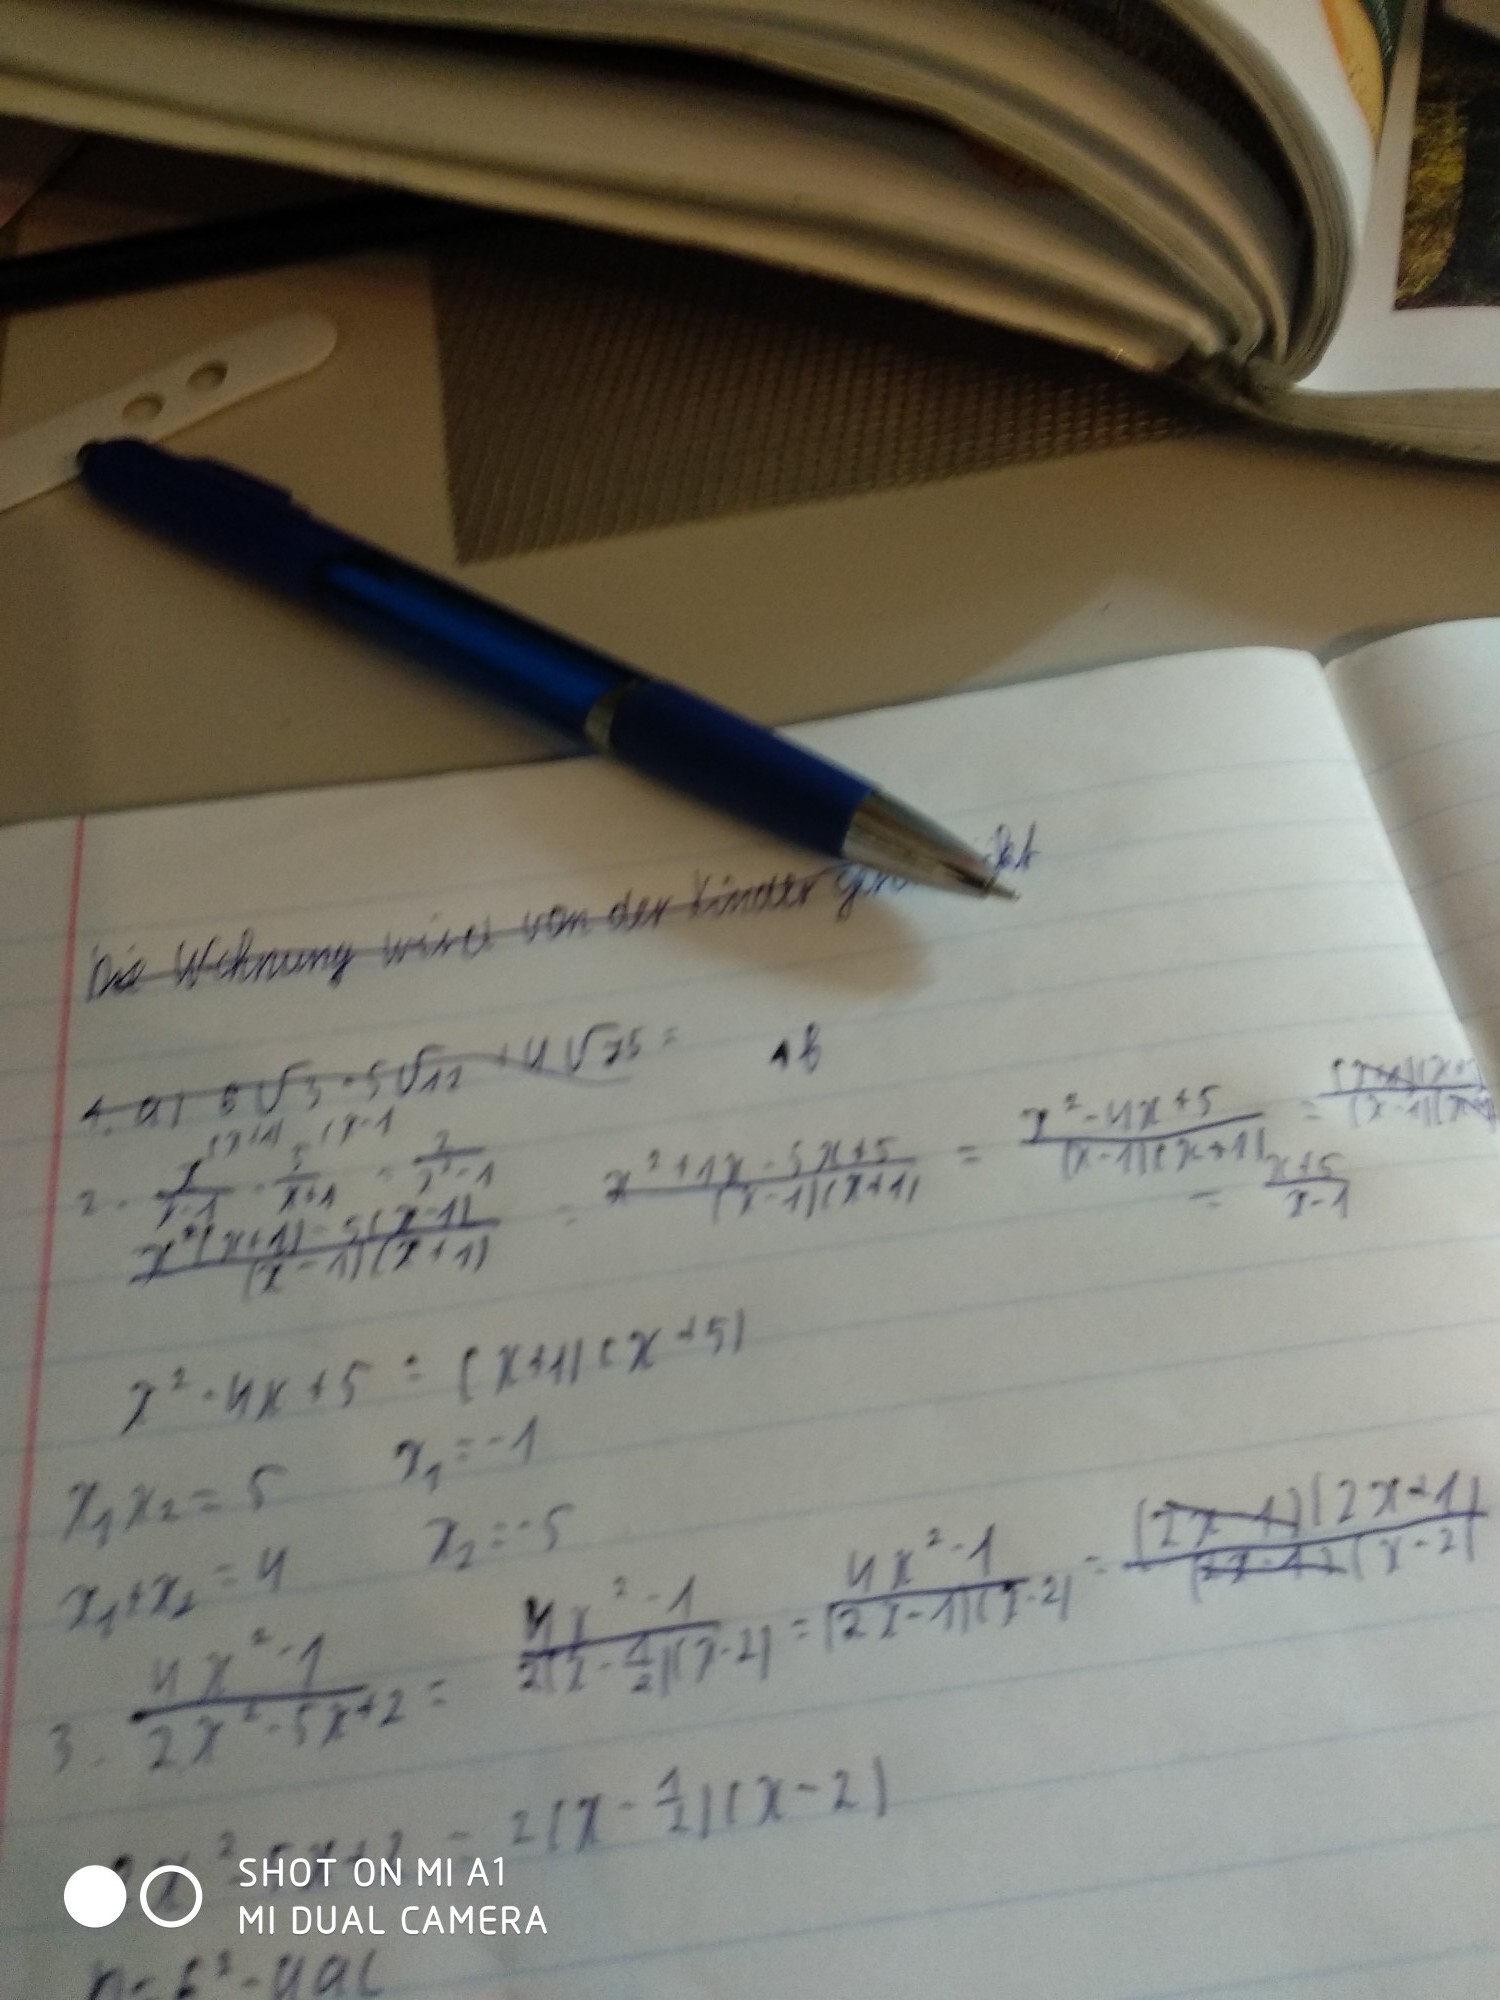 Die Wohnung wird von der Kinder
1. a) 6√3 - 5√12 + 4√75 = 1b
(x+1) (x-1
2. x/x-1 - 5/x+1 = 2/x²-1
x*(x+1)-5(x-1)/(x-1)(x+1) = x²+1x-5x+5/(x-1)(x+1) = x²-4x+5/(x-1)(x+1) = (x+1)(x+5)/(x-1)(x+1)
= x+5/x-1
x²-4x+5 = (x+1)(x+5)
x₁x₂ = 5 x₁ = -1
x₁+x₂ = 4 x₂ = -5
3. 4x²-1/2x²-5x+2 = 4x²-1/2(x-1/2)(x-2) = 4x²-1/(2x-1)(x-2) = (2x-1)(2x+1)/(2x-1)(x-2)
2x²-5x+2 = 2(x-1/2)(x-2)
D=b²-4ac
SHOT ON MI A1
MI DUAL CAMERA